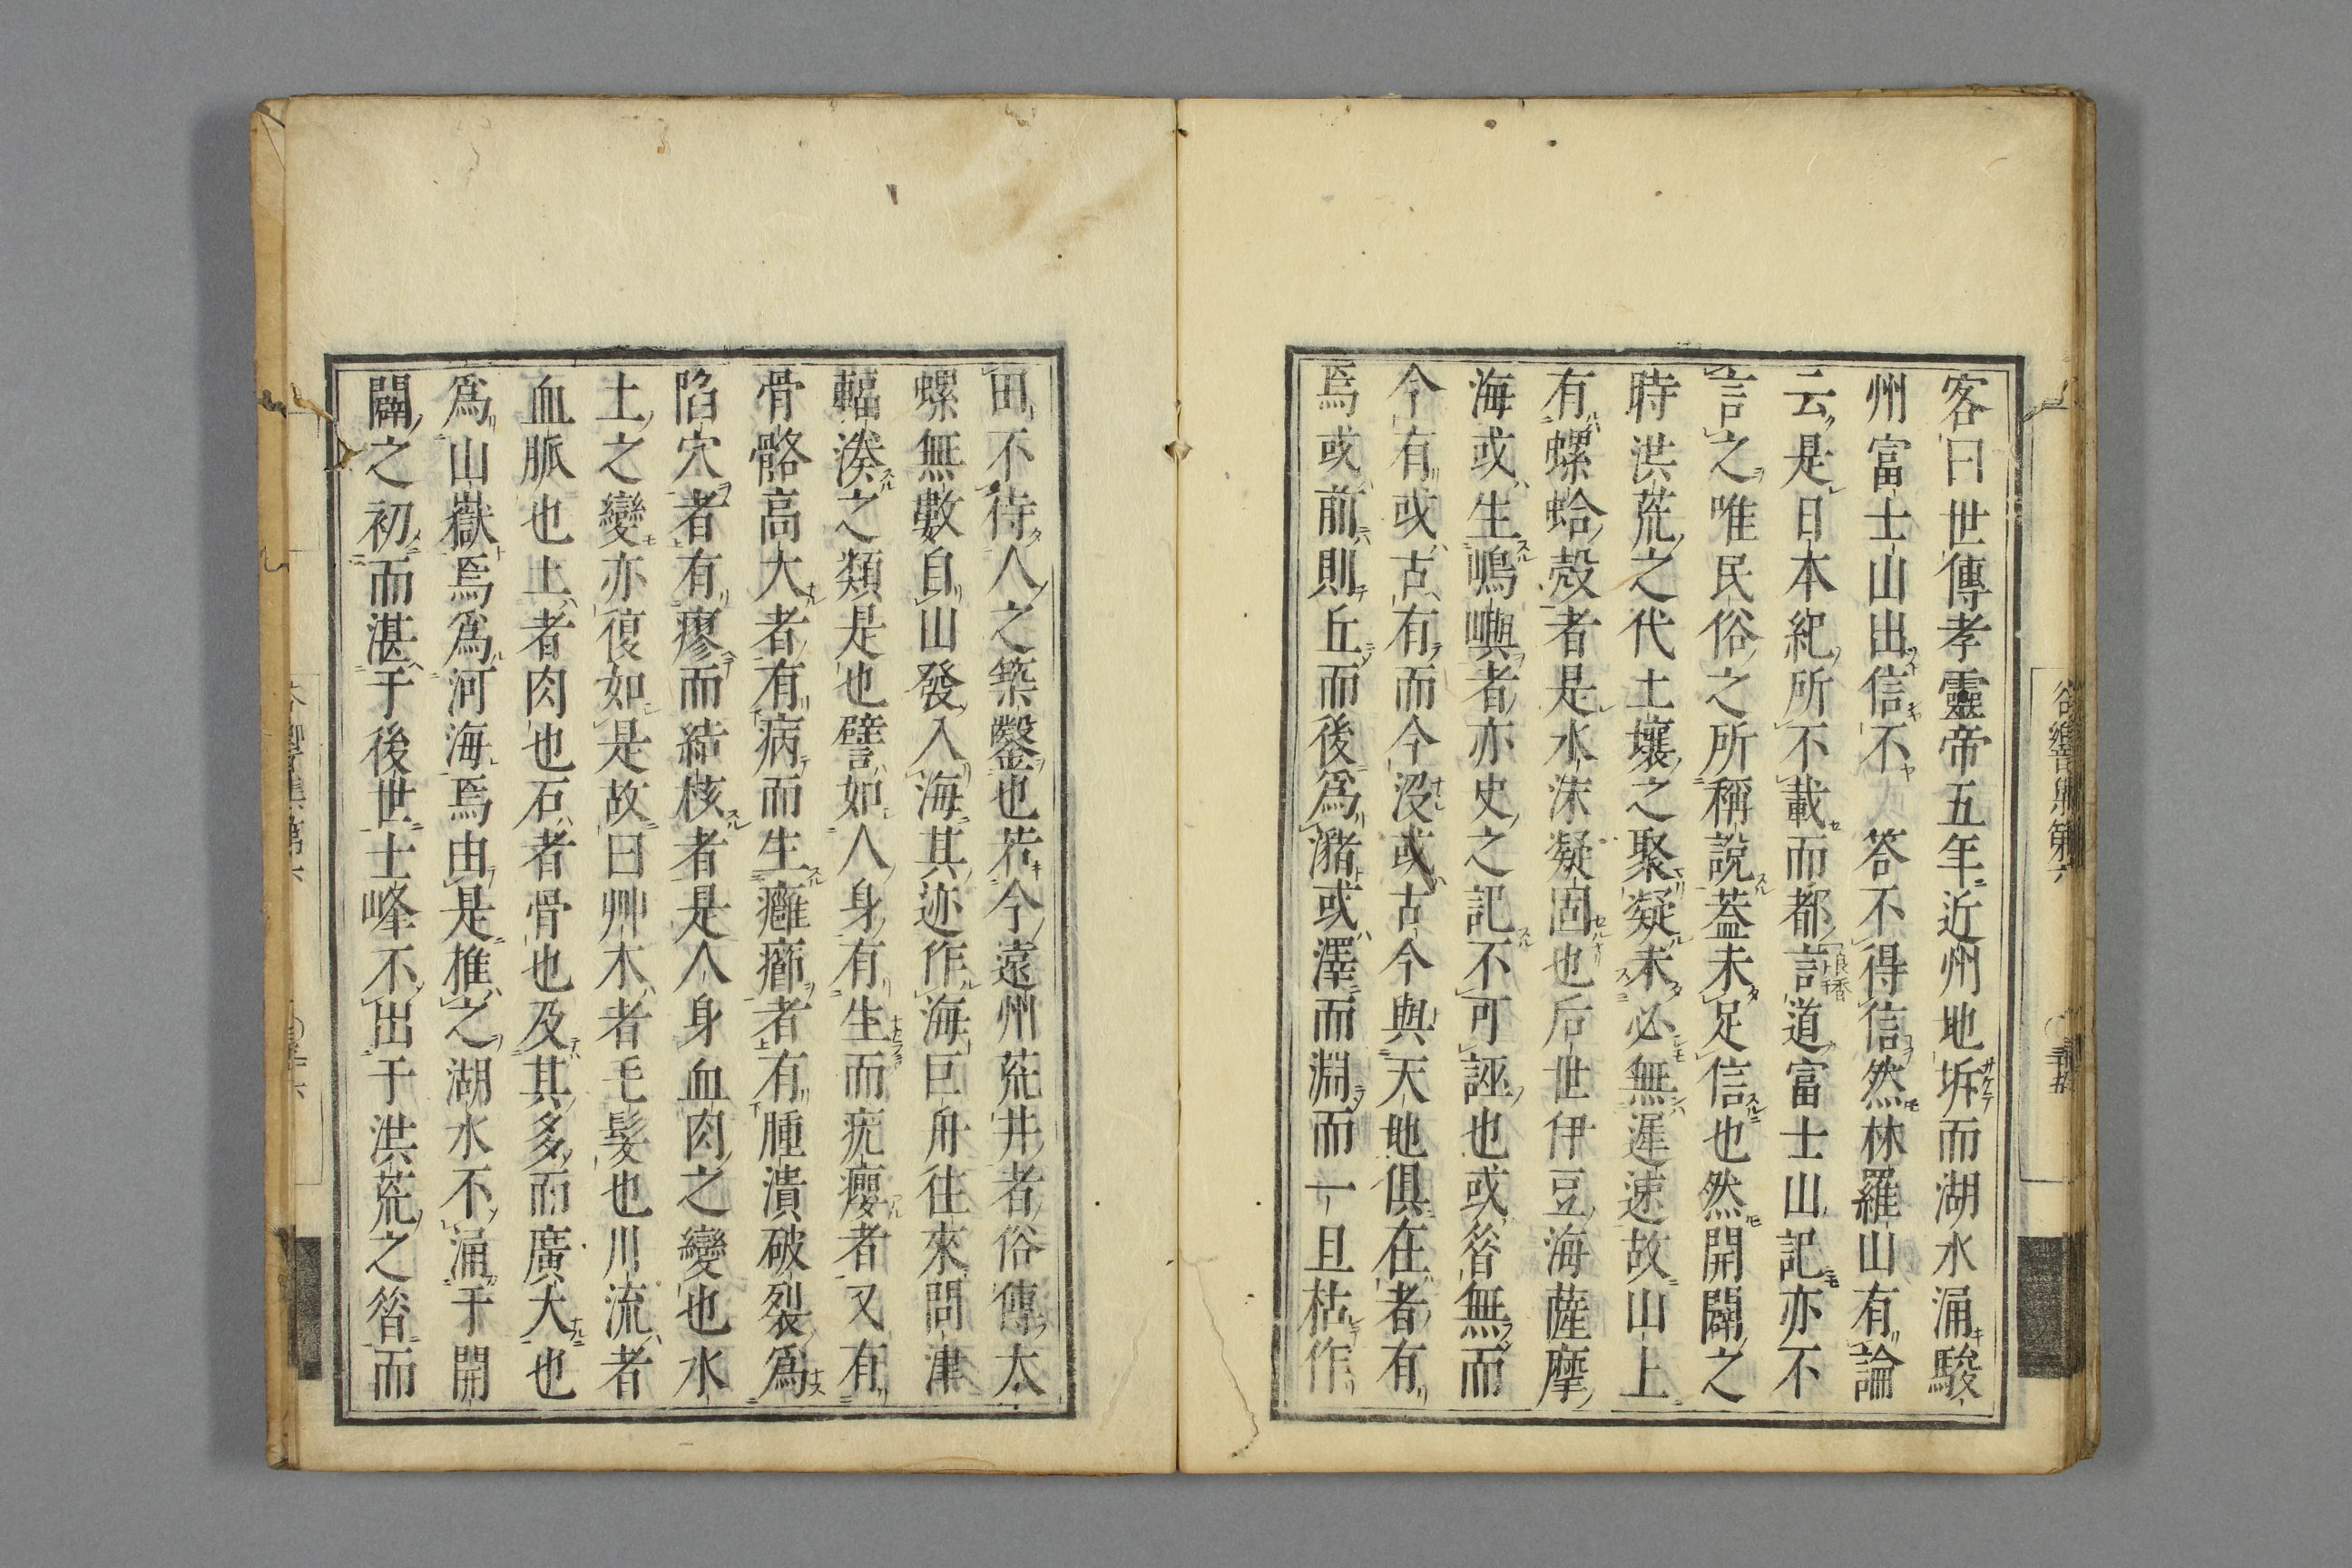 客曰世傳孝靈帝五年近州地坼而湖水涌駿
州富士山出信不 答不得信然林羅山有論
云是日本紀所不載而都言道富士山記亦不
言之唯民俗之所稱說蓋未足信也然開闢之
時洪荒之代土壤之聚凝未必無遲速故山上
有螺蛤殼者是水沫凝固也后世伊豆海薩摩
海或生嶋嶼者亦史之記不可誣也或昝無而
今有或古有而今沒或古今與天地俱在者有
焉或前則丘而後爲瀦或澤而淵而一旦枯作
田不待人之築鑿也若今遠州荒井者俗傳太
螺無數自山發入海其迹作海巨舟往來問津
輻湊之類是也譬如人身有生而疣癭者又有
骨骼高大者有病而生癰癤者有腫潰破裂爲
陷穴者有瘳而結核者是人身血肉之變也水
土之變亦復如是故曰艸木者毛髮也川流者
血脈也土者肉也石者骨也及其多而廣大也
爲山嶽焉爲河海焉由是推之湖水不涌于開
闢之初而湛于後世士峰不出于洪荒之昝而
谷響集第六